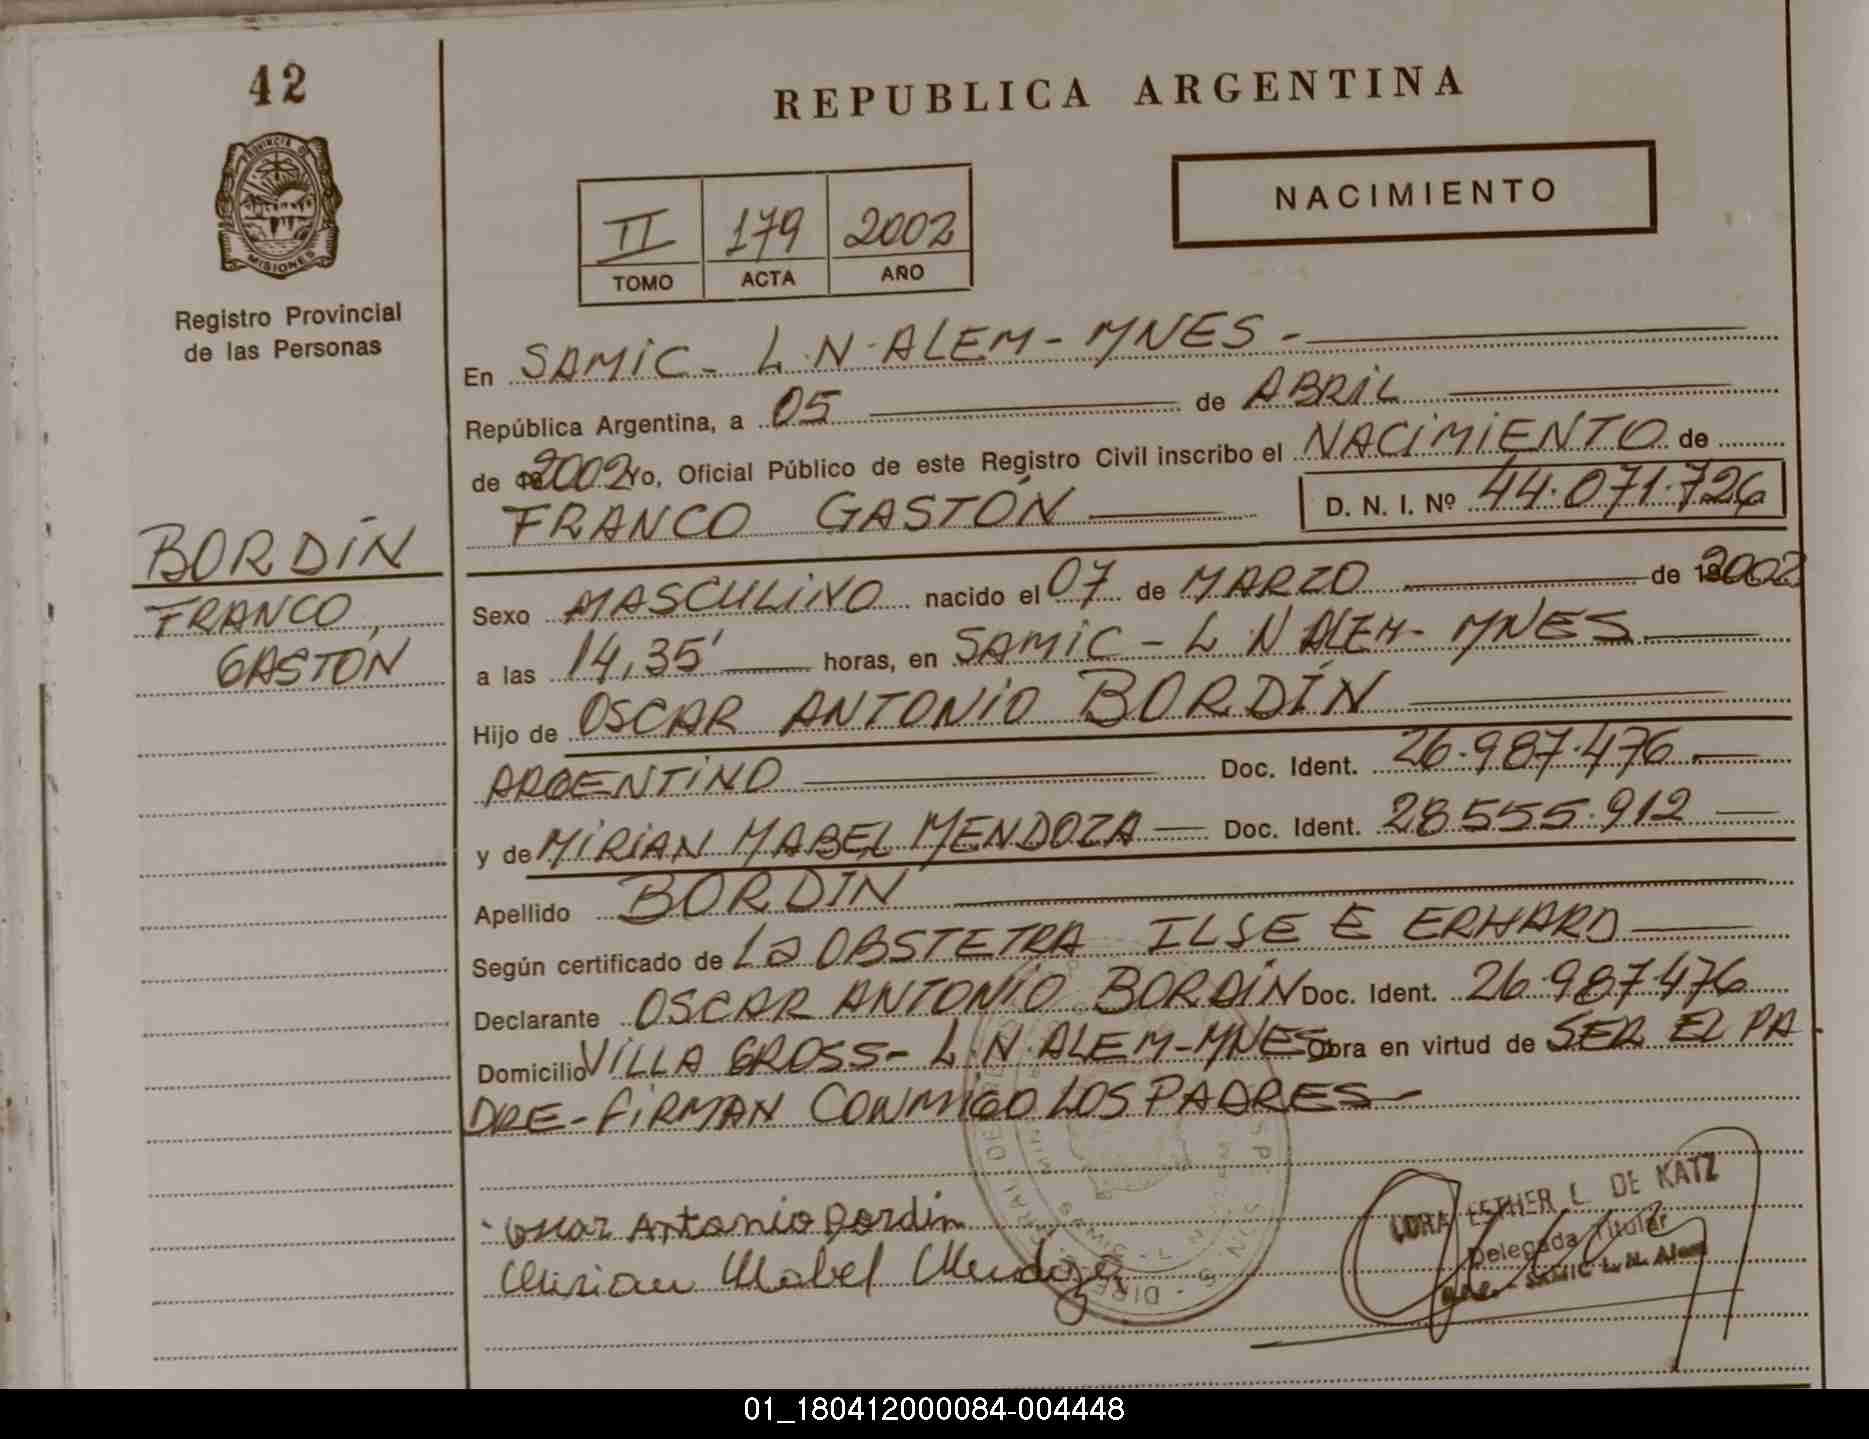 42
REPUBLICA ARGENTINA
PROVINCIA DE
MISIONES
Registro Provincial
de las Personas
NACIMIENTO
II 179 2002
TOMO ACTA AÑO
En SAMIC - L.N. ALEM - MNES -
República Argentina, a 05 de ABRIL
de 2002 yo, Oficial Público de este Registro Civil inscribo el NACIMIENTO de
FRANCO GASTÓN D. N. I. Nº 44.071.726
BORDÍN
FRANCO,
GASTON
Sexo MASCULINO nacido el 07 de MARZO de 2002
a las 14,35' horas, en SAMIC - L N ALEM - MNES
Hijo de OSCAR ANTONIO BORDÍN
ARGENTINO Doc. Ident. 26.987.476.
y de MIRIAN MABEL MENDOZA Doc. Ident. 28555.912
Apellido BORDIN
Según certificado de La OBSTETRA ILSE E ERHARD
Declarante OSCAR ANTONIO BORDÍN Doc. Ident. 26.987.476
Domicilio VILLA GROSS - L.N. ALEM - MNES Obra en virtud de SER EL PA
DRE - FIRMAN CONMIGO LOS PADRES -
Oscar Antonio Bordin
Mirian Mabel Mendoza
ESTHER L. DE KATZ
Delegada Titular
SAMIC L. N. Alem
01_180412000084-004448